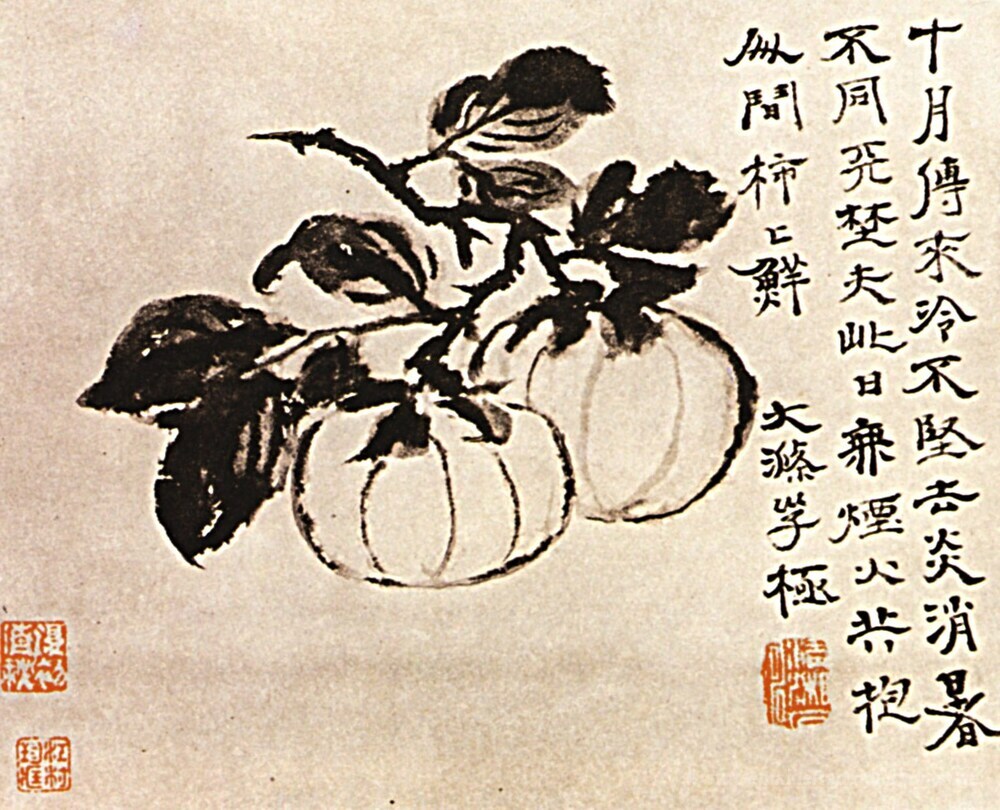 十月傳來冷不堅去炎消暑
不同天埜夫此日無煙火共抱
閒柿〻鮮
大滌子極